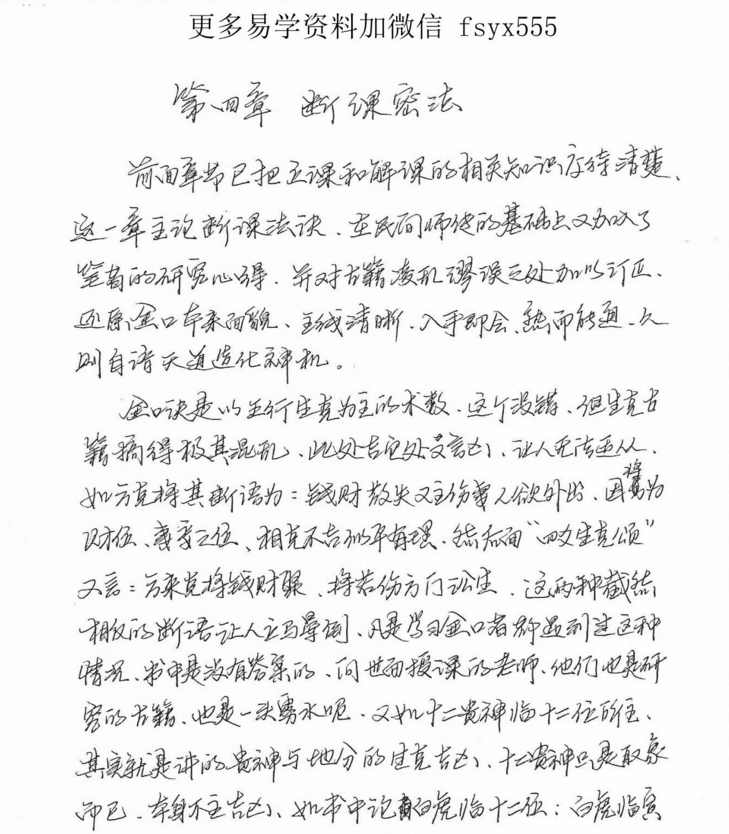 更多易学资料加微信 fsyx555
第四章 断课密法
前面章节已把立课和解课的相关知识交待清楚、
这一章主论断课法诀、在民间师传的基础上又加入了
笔者的研究心得、并对古籍凌乱谬误之处加以订正、
还原金口本来面貌、主线清晰、入手即会、熟而能通、久
则自诸天道造化神机。
金口诀是以五行生克为主的术数、这个没错、但生克古
籍搞得极其混乱、此处言吉彼处又言凶、让人无法适从、
如方克将其断语为：钱财散失又主伤妻人欲外出、因将为
财位、妻妾之位、相克不吉似乎有理、然后面“四位生克颂”
又言：方来克将钱财聚、将若伤方门讼生、这两种截然
相反的断语让人立马晕倒、凡是学习金口者都遇到过这种
情况、书中是没有答案的、问世面授课的老师、他们也是研
究的古籍、也是一头雾水呢、又如十二贵神临十二位所主、
其实就是讲的贵神与地分的生克吉凶、十二贵神只是取象
而已、本身不主吉凶、如书中论白虎临十二位：白虎临寅